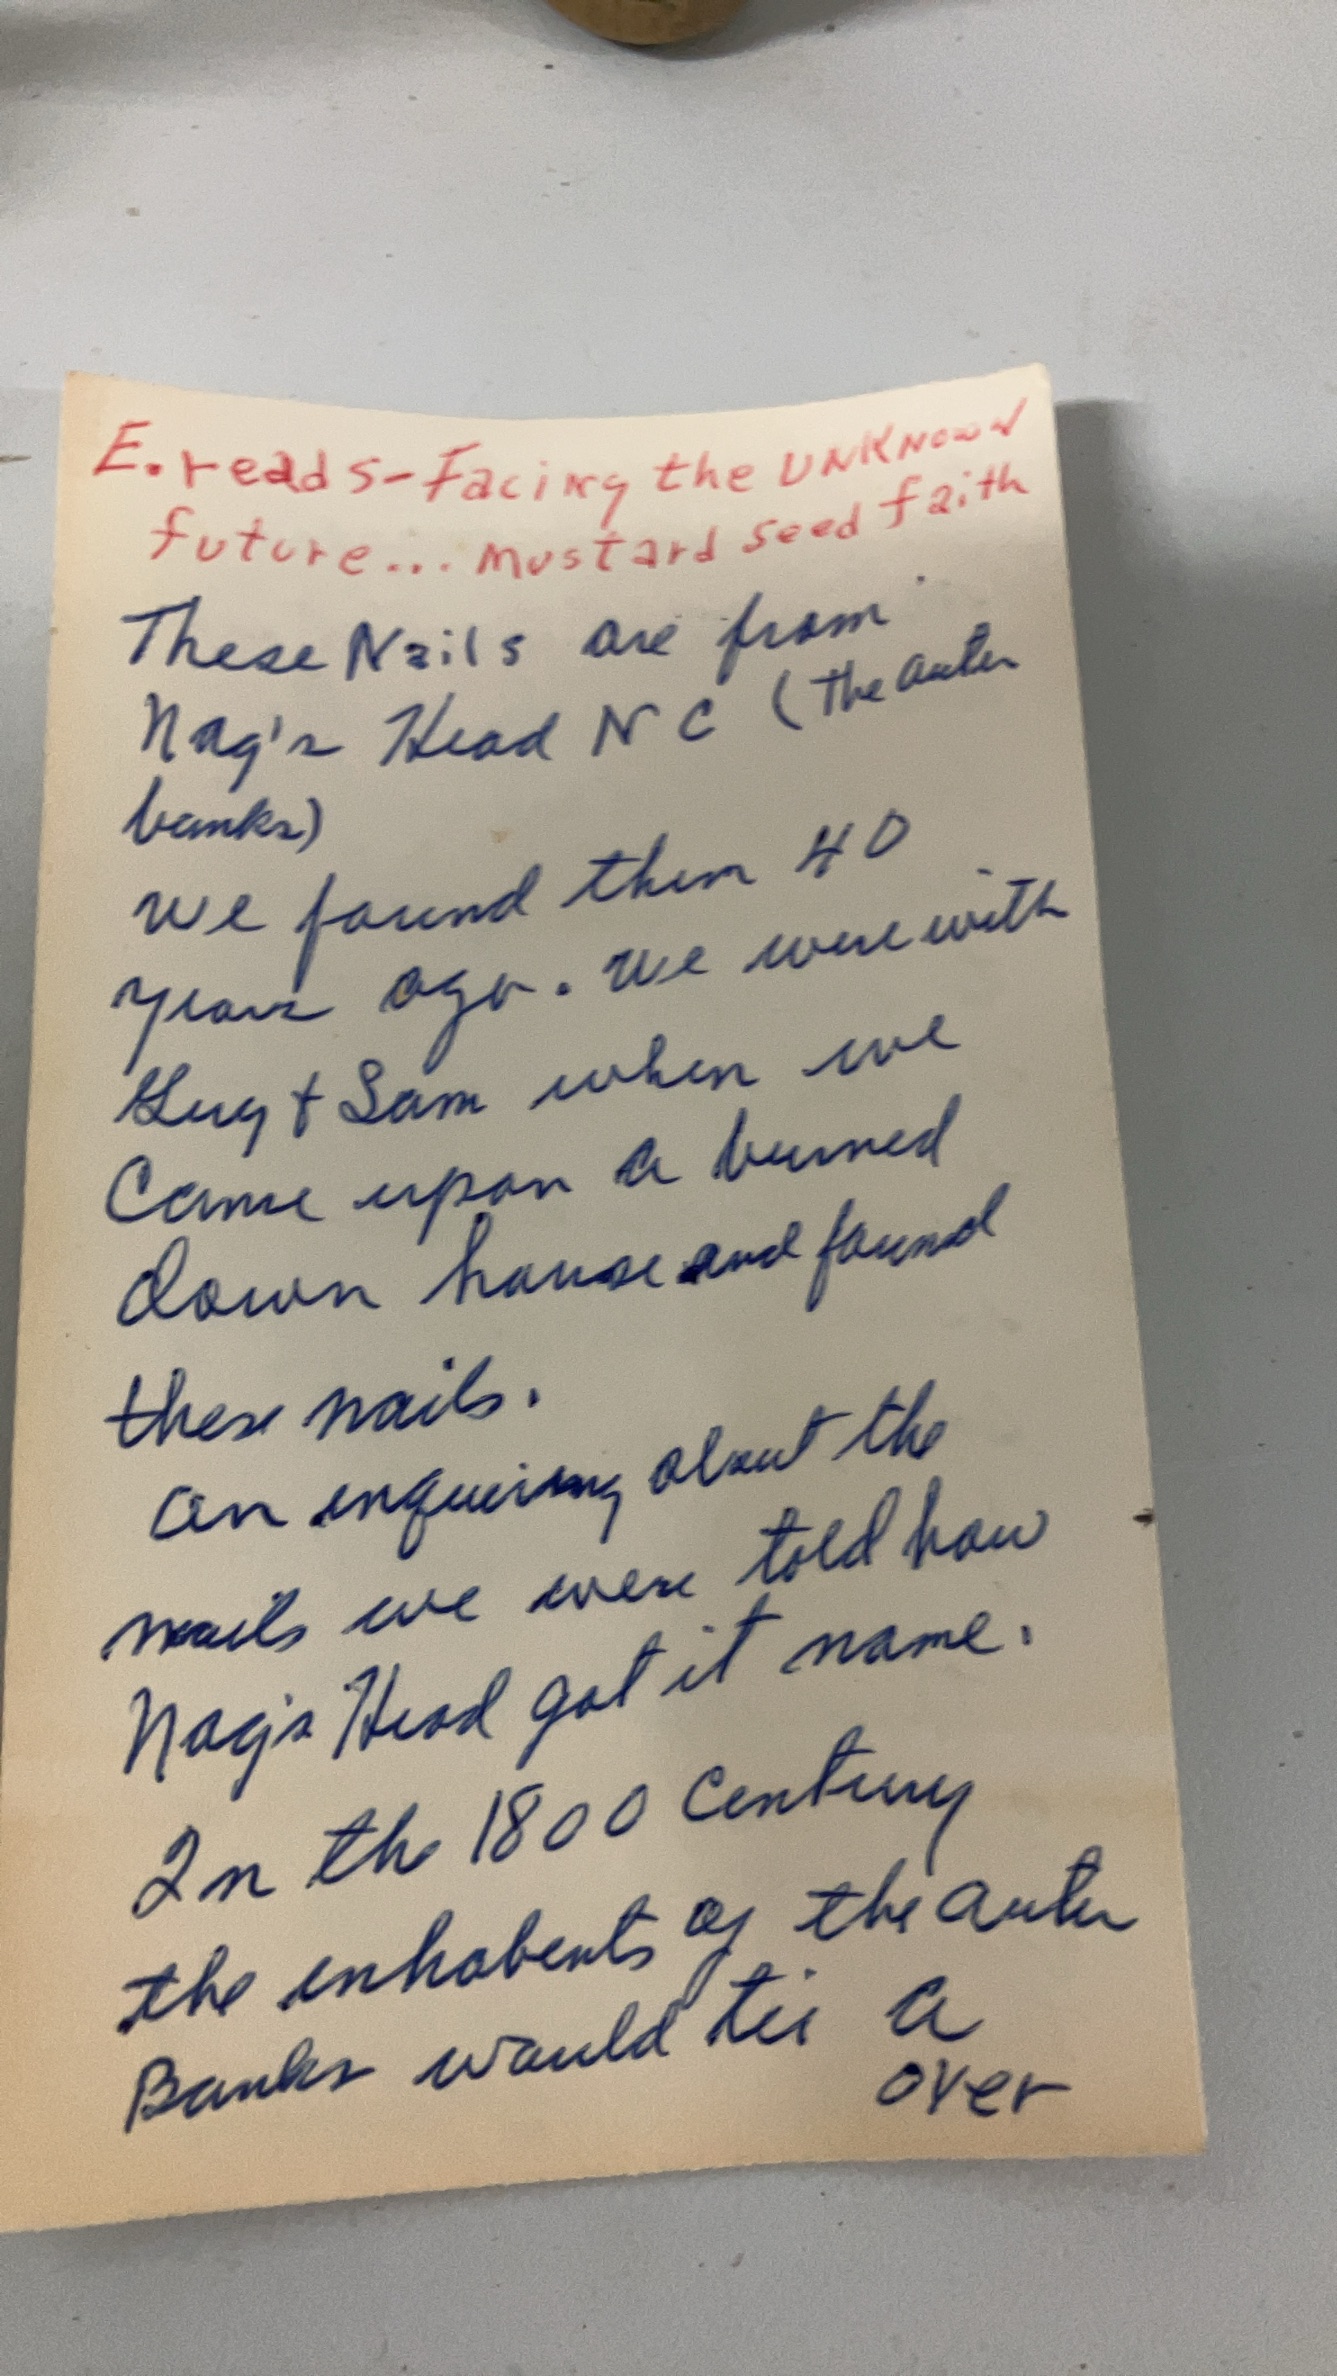 E. reads - Facing the UNKNOWN
future... mustard seed faith
These Nails are from
Nag's Head NC (The outer
banks)
we found them 40
years ago. we were with
Guy + Sam when we
Came upon a burned
down house and found
these nails.
on enquiring about the
nails we were told how
Nag's Head got it name.
In the 1800 century
the enhabents of the outer
Banks would tie a
over